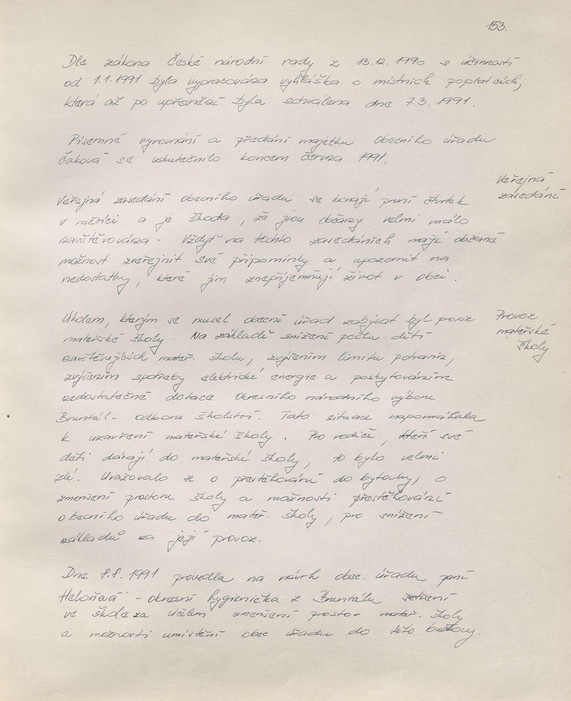 153.
Dle zákona České národní rady z 13.12.1990 s účinností
od 1.1.1991 byla vypracována vyhláška o místních poplatcích,
která až po upřesnění byla schválena dne 7.3.1991.
Písemné vyrovnání a předání majetku Obecního úřadu
Čaková se uskutečnilo koncem června 1991.
Veřejná
zasedání
Veřejná zasedání obecního úřadu se konají první čtvrtek
v měsíci a je škoda, že jsou občany velmi málo
navštěvována. Vždyť na těchto zasedáních mají občané
možnost zveřejnit své připomínky a upozornit na
nedostatky, které jim znepříjemňují život v obci.
Provoz
mateřské
školy
Úkolem, kterým se musel obecní úřad zabývat byl provoz
mateřské školy. Na základě snížení počtu dětí
navštěvujících mateř. školu, zvýšením limitu potravin,
zvýšením spotřeby elektrické energie a poskytováním
nedostatečné dotace Okresního národního výboru
Bruntál - odboru školství. Tato situace napomáhala
k uzavření mateřské školy. Pro rodiče, kteří své
děti dávají do mateřské školy, to bylo velmi
zlé. Uvažovalo se o přestěhování do bytovky, o
zmenšení prostoru školy a možnosti přestěhování
obecního úřadu do mateř. školy, pro snížení
nákladů na její provoz.
Dne 8.8.1991 provedla na návrh obec. úřadu paní
- okresní hygienička z Bruntálu
ve škole za účelem zmenšení prostor mateř. školy
a možnosti umístění obec úřadu do této budovy.